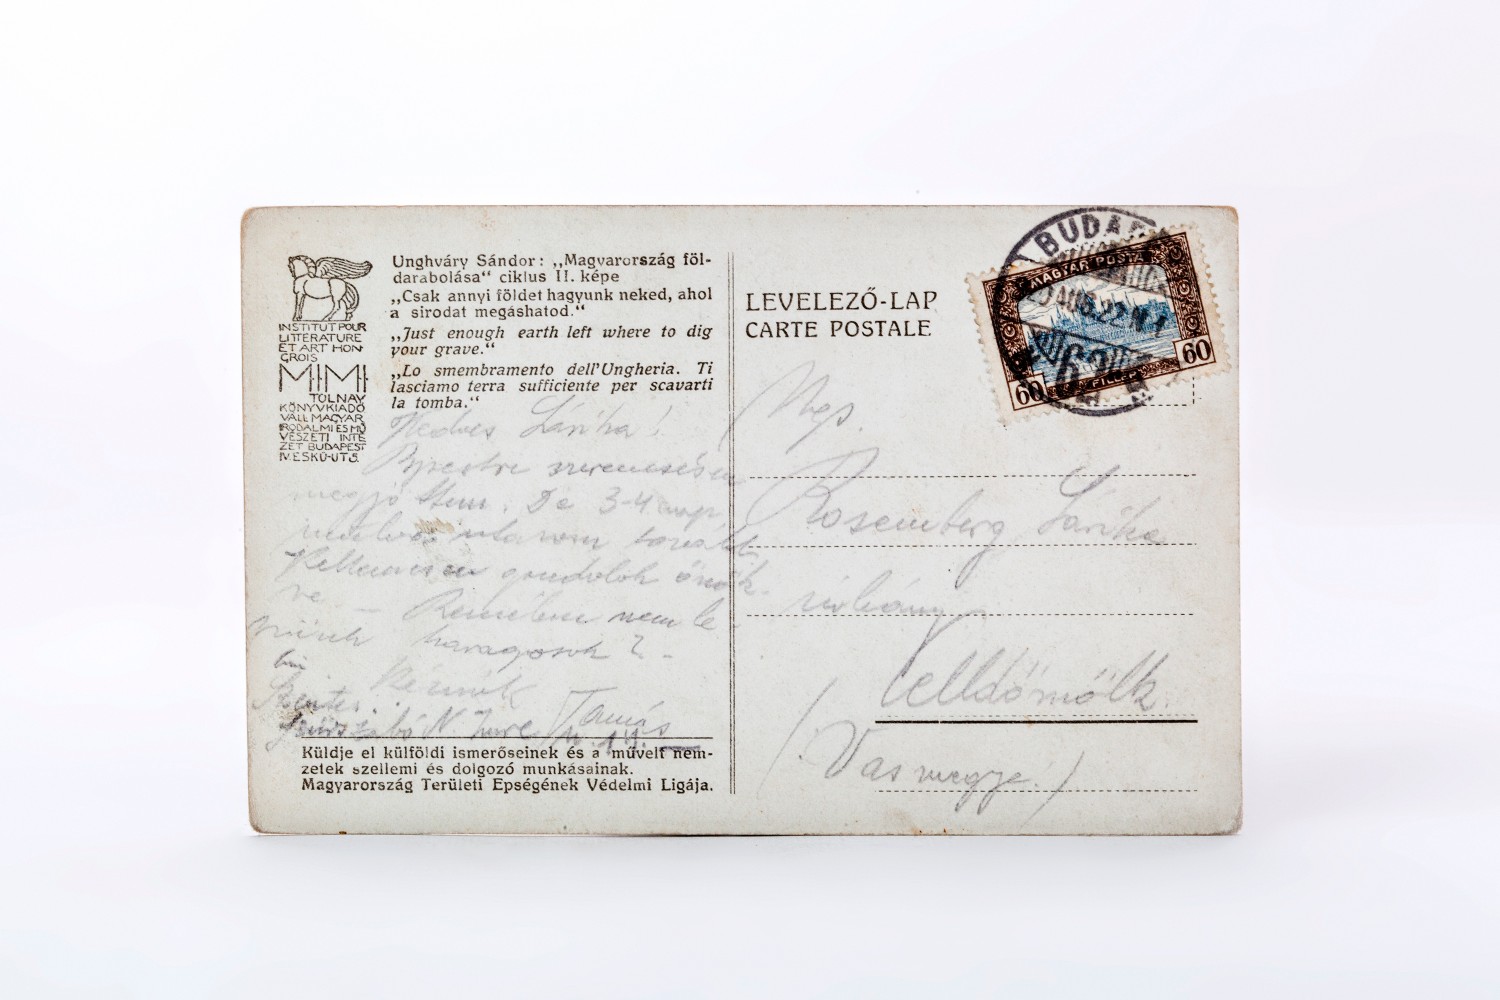 INSTITUT POUR
LITTÉRATURE
ET ART HON-
GROIS
MIMI
TOLNAY
KÖNYVKIADÓ
VÁLL MAGYAR
IRODALMI ÉS MŰ
VÉSZETI INTÉ
ZET BUDAPEST
IV. ESKÜ-UT 5.
Unghváry Sándor: „Magyarország föl-
darabolása“ ciklus II. képe
„Csak annyi földet hagyunk neked, ahol
a sirodat megáshatod.“
„Just enough earth left where to dig
your grave.“
„Lo smembramento dell'Ungheria. Ti
lasciamo terra sufficiente per scavarti
la tomba.“
Kedves Sárika!
Bpestre szerencsésen
megjöttem. De 3-4 nap
mulva utazom tovább
Kellemesen gondolok önök-
re — Remélem nem le-
szünk haragosok? -
Tamás
Küldje el külföldi ismerőseinek és a művelt nem-
zetek szellemi és dolgozó munkásainak.
Magyarország Területi Epségének Védelmi Ligája.
LEVELEZŐ-LAP
CARTE POSTALE
BUDAP
MAGYAR POSTA
60 FILLÉR 60
Ngs.
Rosemberg Sárika
urleány
Celldömölk.
(Vasmegye)